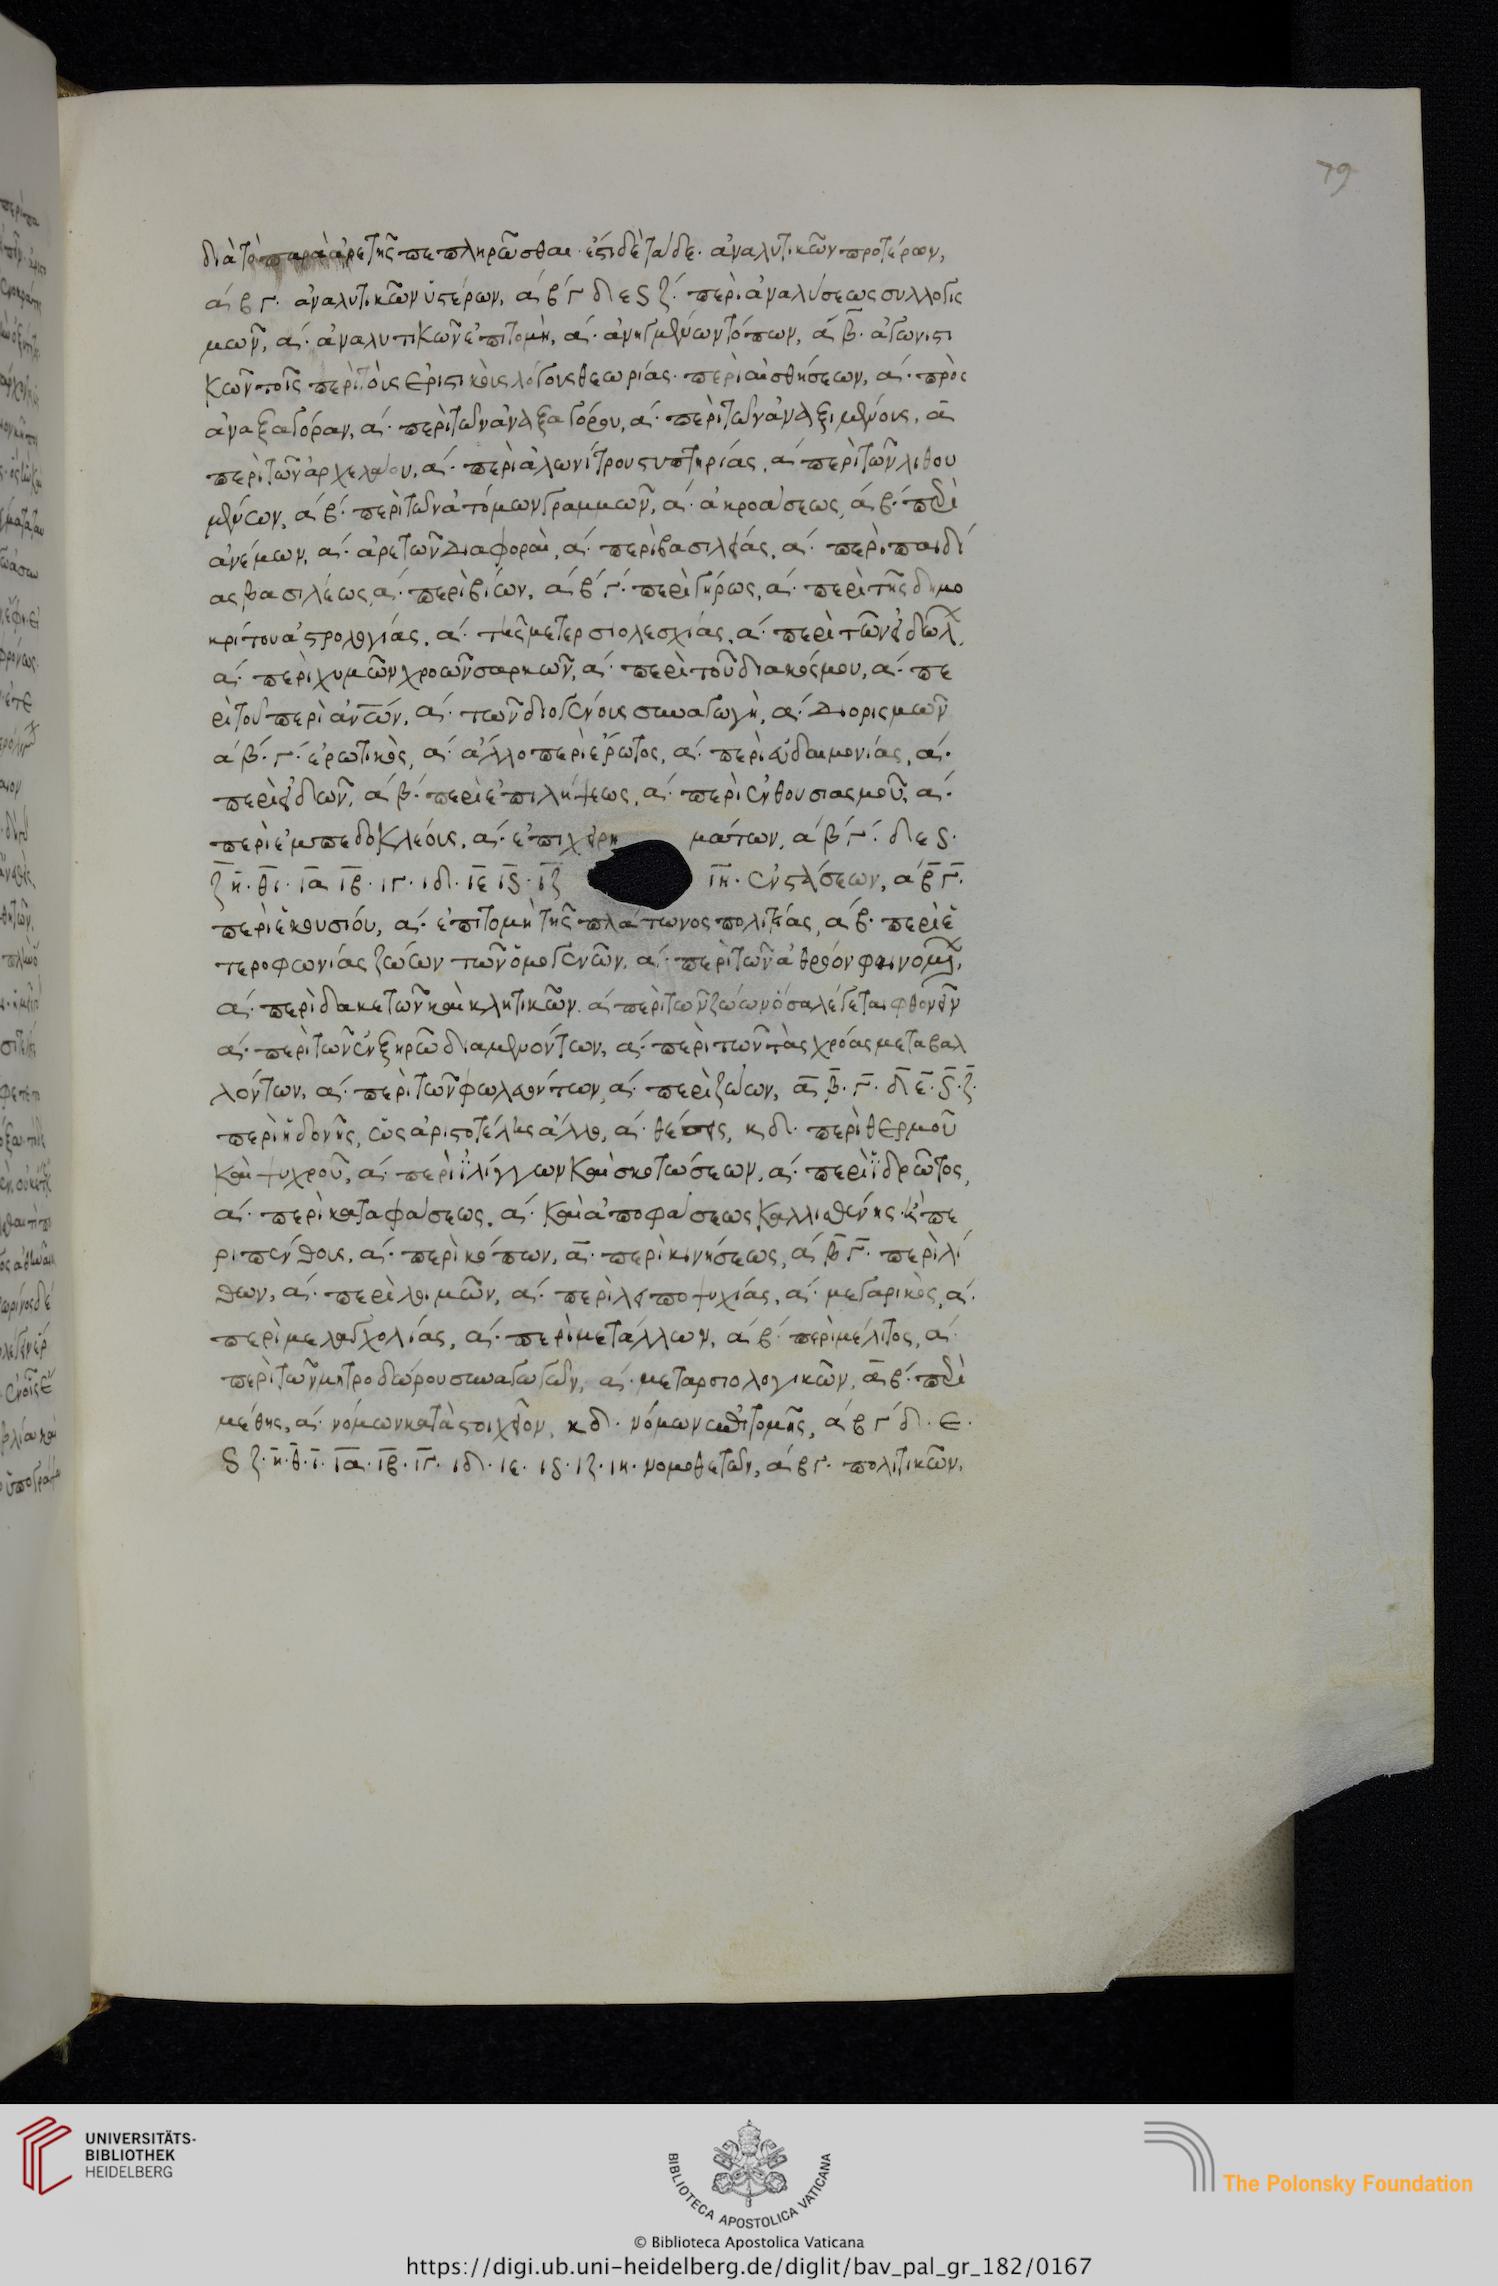 79
διὰ τὸ παρὰ ἀρετῆς πεπληρῶσθαι. ἔστι δὲ τάδε. ἀναλυτικῶν προτέρων,
ά β γ. ἀναλυτικῶν ὑστέρων, ά β́ γ δ ε ϛ ζ. περὶ ἀναλύσεως συλλογισ
μῶν, ά. ἀναλυτικῶν ἐπιτομὴ, ά. ἀνηγμένων τόπων, ά β̄. ἀγωνιστι
κῶν τοῖς περὶ τοὺς ἐριστικοὺς λόγους θεωρίας. περὶ αἰσθήσεων, ά. πρὸς
ἀναξαγόραν, ά. περὶ τῶν ἀναξαγόρου, ά. περὶ τῶν ἀναξιμένους, ᾱ
περὶ τῶν ἀρχελάου, ά. περὶ ἁλῶν νίτρου στυπτηρίας, ά περὶ τῶν λιθου
μένων, ά β́. περὶ τῶν ἀτόμων γραμμῶν, ά. ἀκροάσεως, ά β. περὶ
ἀνέμων, ά. ἀρετῶν διαφοραὶ, ά. περὶ βασιλείας, ά. περὶ παιδεί
ας βασιλέως, ά. περὶ βίων, ά β́ γ́. περὶ γήρως, ά. περὶ τῆς δημο
κρίτου ἀστρολογίας, ά. τῆς μετερσιολεσχίας, ά. περὶ τῶν εἰδώλ,
ά. περὶ χυμῶν χροῶν σαρκῶν, ά. περὶ τοῦ διακόσμου, ά. πε
ρὶ τοῦ περὶ ἀν͞ων, ά. τῶν διογένους συναγωγὴ, ά. διορισμῶν
ά β́. γ́. ἐρωτικὸς, ά. ἄλλο περὶ ἔρωτος, ά. περὶ εὐδαιμονίας, ά.
περὶ εἰδῶν, ά β́. περὶ ἐπιλήψεως, ά. περὶ ἐνθουσιασμοῦ, ά.
περὶ ἐμπεδοκλέους, ά. ἐπιχειρη μάτων, ά β́ γ́. δ ε ϛ.
ζ̄ η̄. θ̄ι. ι͞α ι͞β. ιγ. ιδ. ι͞ε ι͞ϛ. ι͞ζ ι͞η. ἐνστάσεων, ά β̄ γ̄.
περὶ ἑκουσίου, ά. ἐπιτομὴ τῆς πλάτωνος πολιτείας, ά β. περὶ ἑ
τεροφωνίας ζώων τῶν ὁμογενῶν, ά. περὶ τῶν ἀθρόον φαινομ,
ά. περὶ δακετῶν καὶ κλητικῶν. ά περὶ τῶν ζώων ὅσα λέγεται φθονεῖν
ά. περὶ τῶν ἐν ξηρῶ διαμενόντων, ά. περὶ τῶν τὰς χρόας μεταβαλ
λόντων, ά. περὶ τῶν φωλευόντων, ά. περὶ ζώων, ᾱ β̄. γ̄. δ̄ ε̄. ϛ̄. ζ̄.
περὶ ἡδονῆς, ὡς ἀριστοτέλης ἄλλο, ά. θέσεις, κδ. περὶ θερμοῦ
καὶ ψυχροῦ, ά. περὶ ἰλίγγων καὶ σκοτώσεων, ά. περὶ ἱδρῶτος,
ά. περὶ καταφάσεως, ά. καὶ ἀποφάσεως καλλισθένης ἢ πε
ρὶ πένθους, ά. περὶ κόπων, ᾱ. περὶ κινήσεως, ά β̄ γ̄. περὶ λί
θων, ά. περὶ λοιμῶν, ά. περὶ λειποψυχίας, ά. μεγαρικὸς, ά.
περὶ μελαγχολίας, ά. περὶ μετάλλων, ά β́ περὶ μέλιτος, ά.
περὶ τῶν μητροδώρου συναγωγῶν, ά. μεταρσιολογικῶν, ᾱ β́. περὶ
μέθης, ά. νόμων κατὰ στοιχεῖον, κδ. νόμων ἐπιτομῆς, ά β γ́ δ. ε.
ϛ ζ. η̄. θ̄. ῑ. ι͞α. ι͞β. ι͞γ. ιδ. ιε. ιϛ. ιζ. ιη. νομοθετῶν, ά β γ. πολιτικῶν,
UNIVERSITÄTS-
BIBLIOTHEK
HEIDELBERG
BIBLIOTECA APOSTOLICA VATICANA
The Polonsky Foundation
© Biblioteca Apostolica Vaticana
https://digi.ub.uni-heidelberg.de/diglit/bav_pal_gr_182/0167